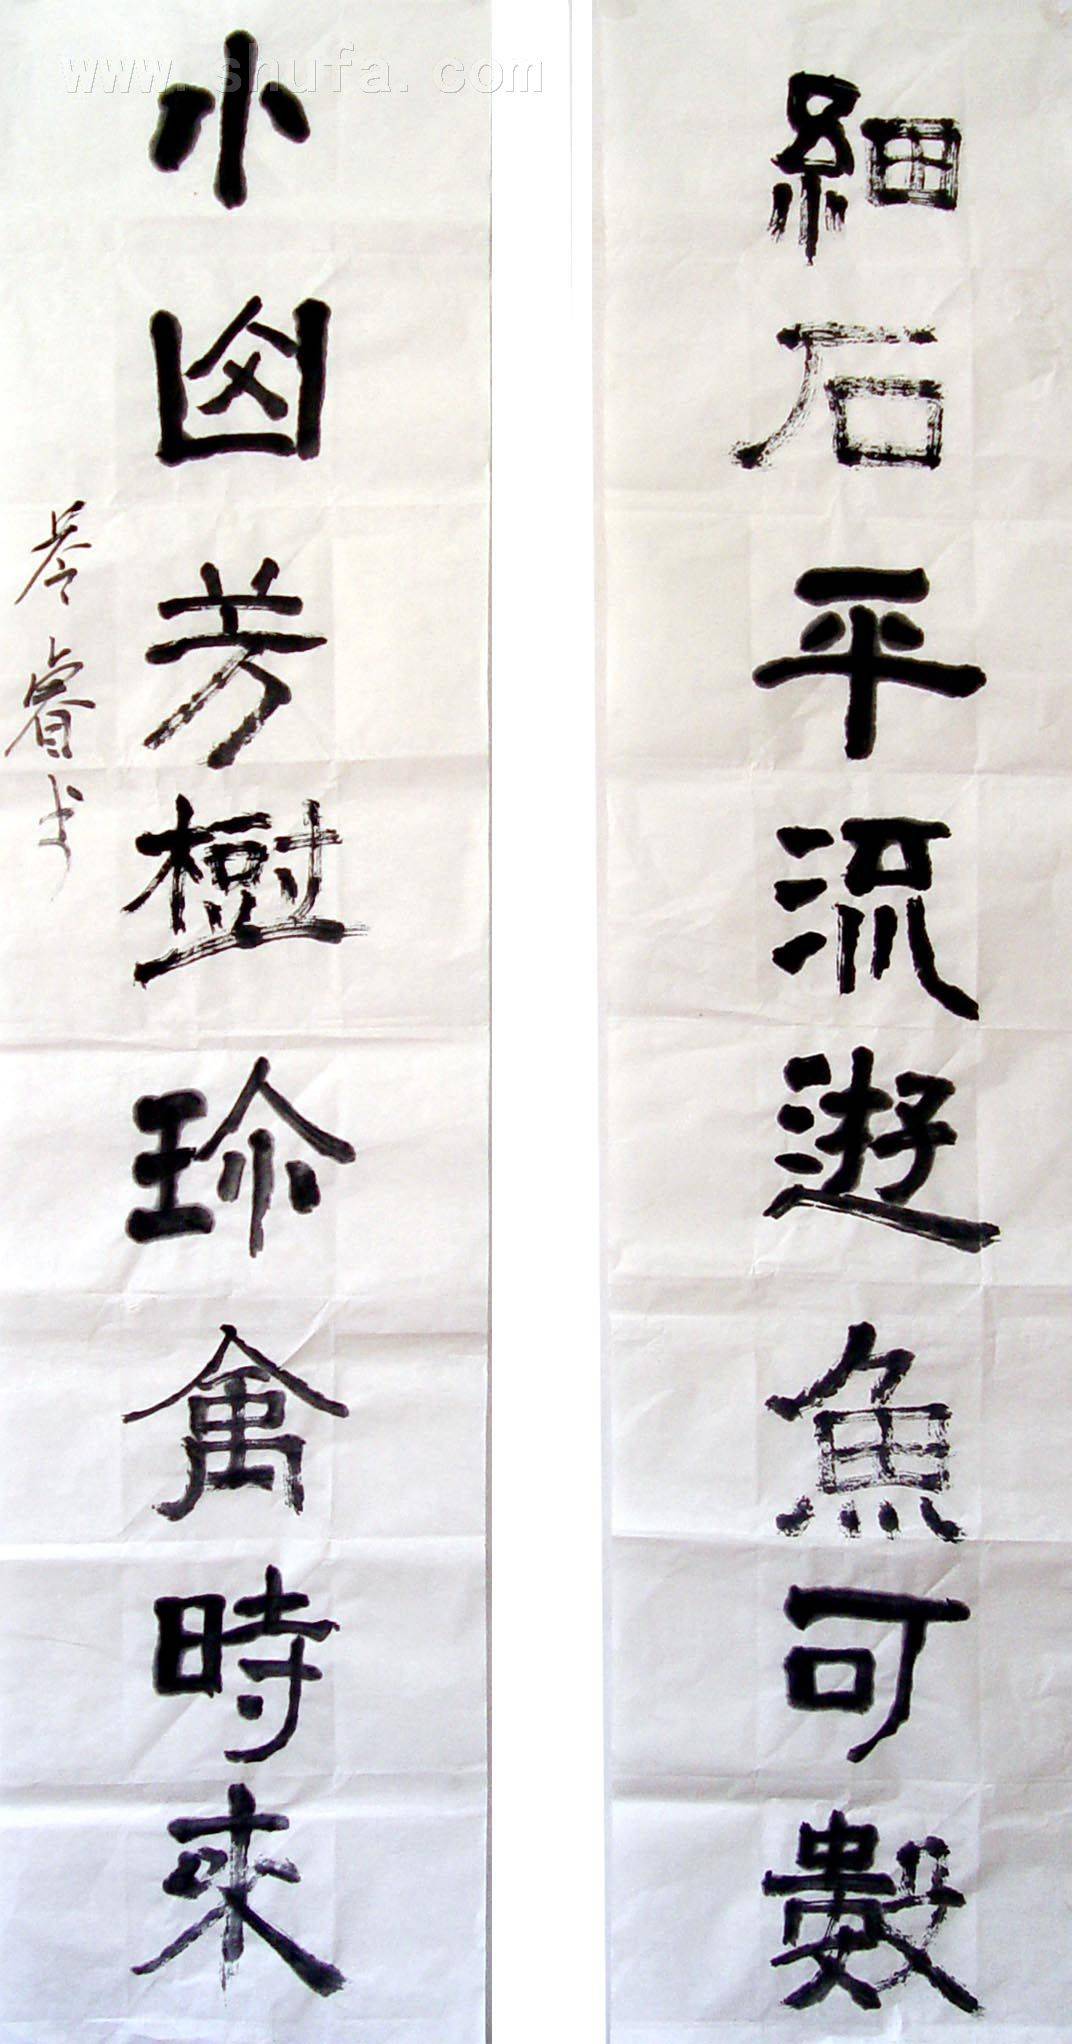 www.shufa.com
細石平流遊魚可數
小芳樹珍禽時來
睿书